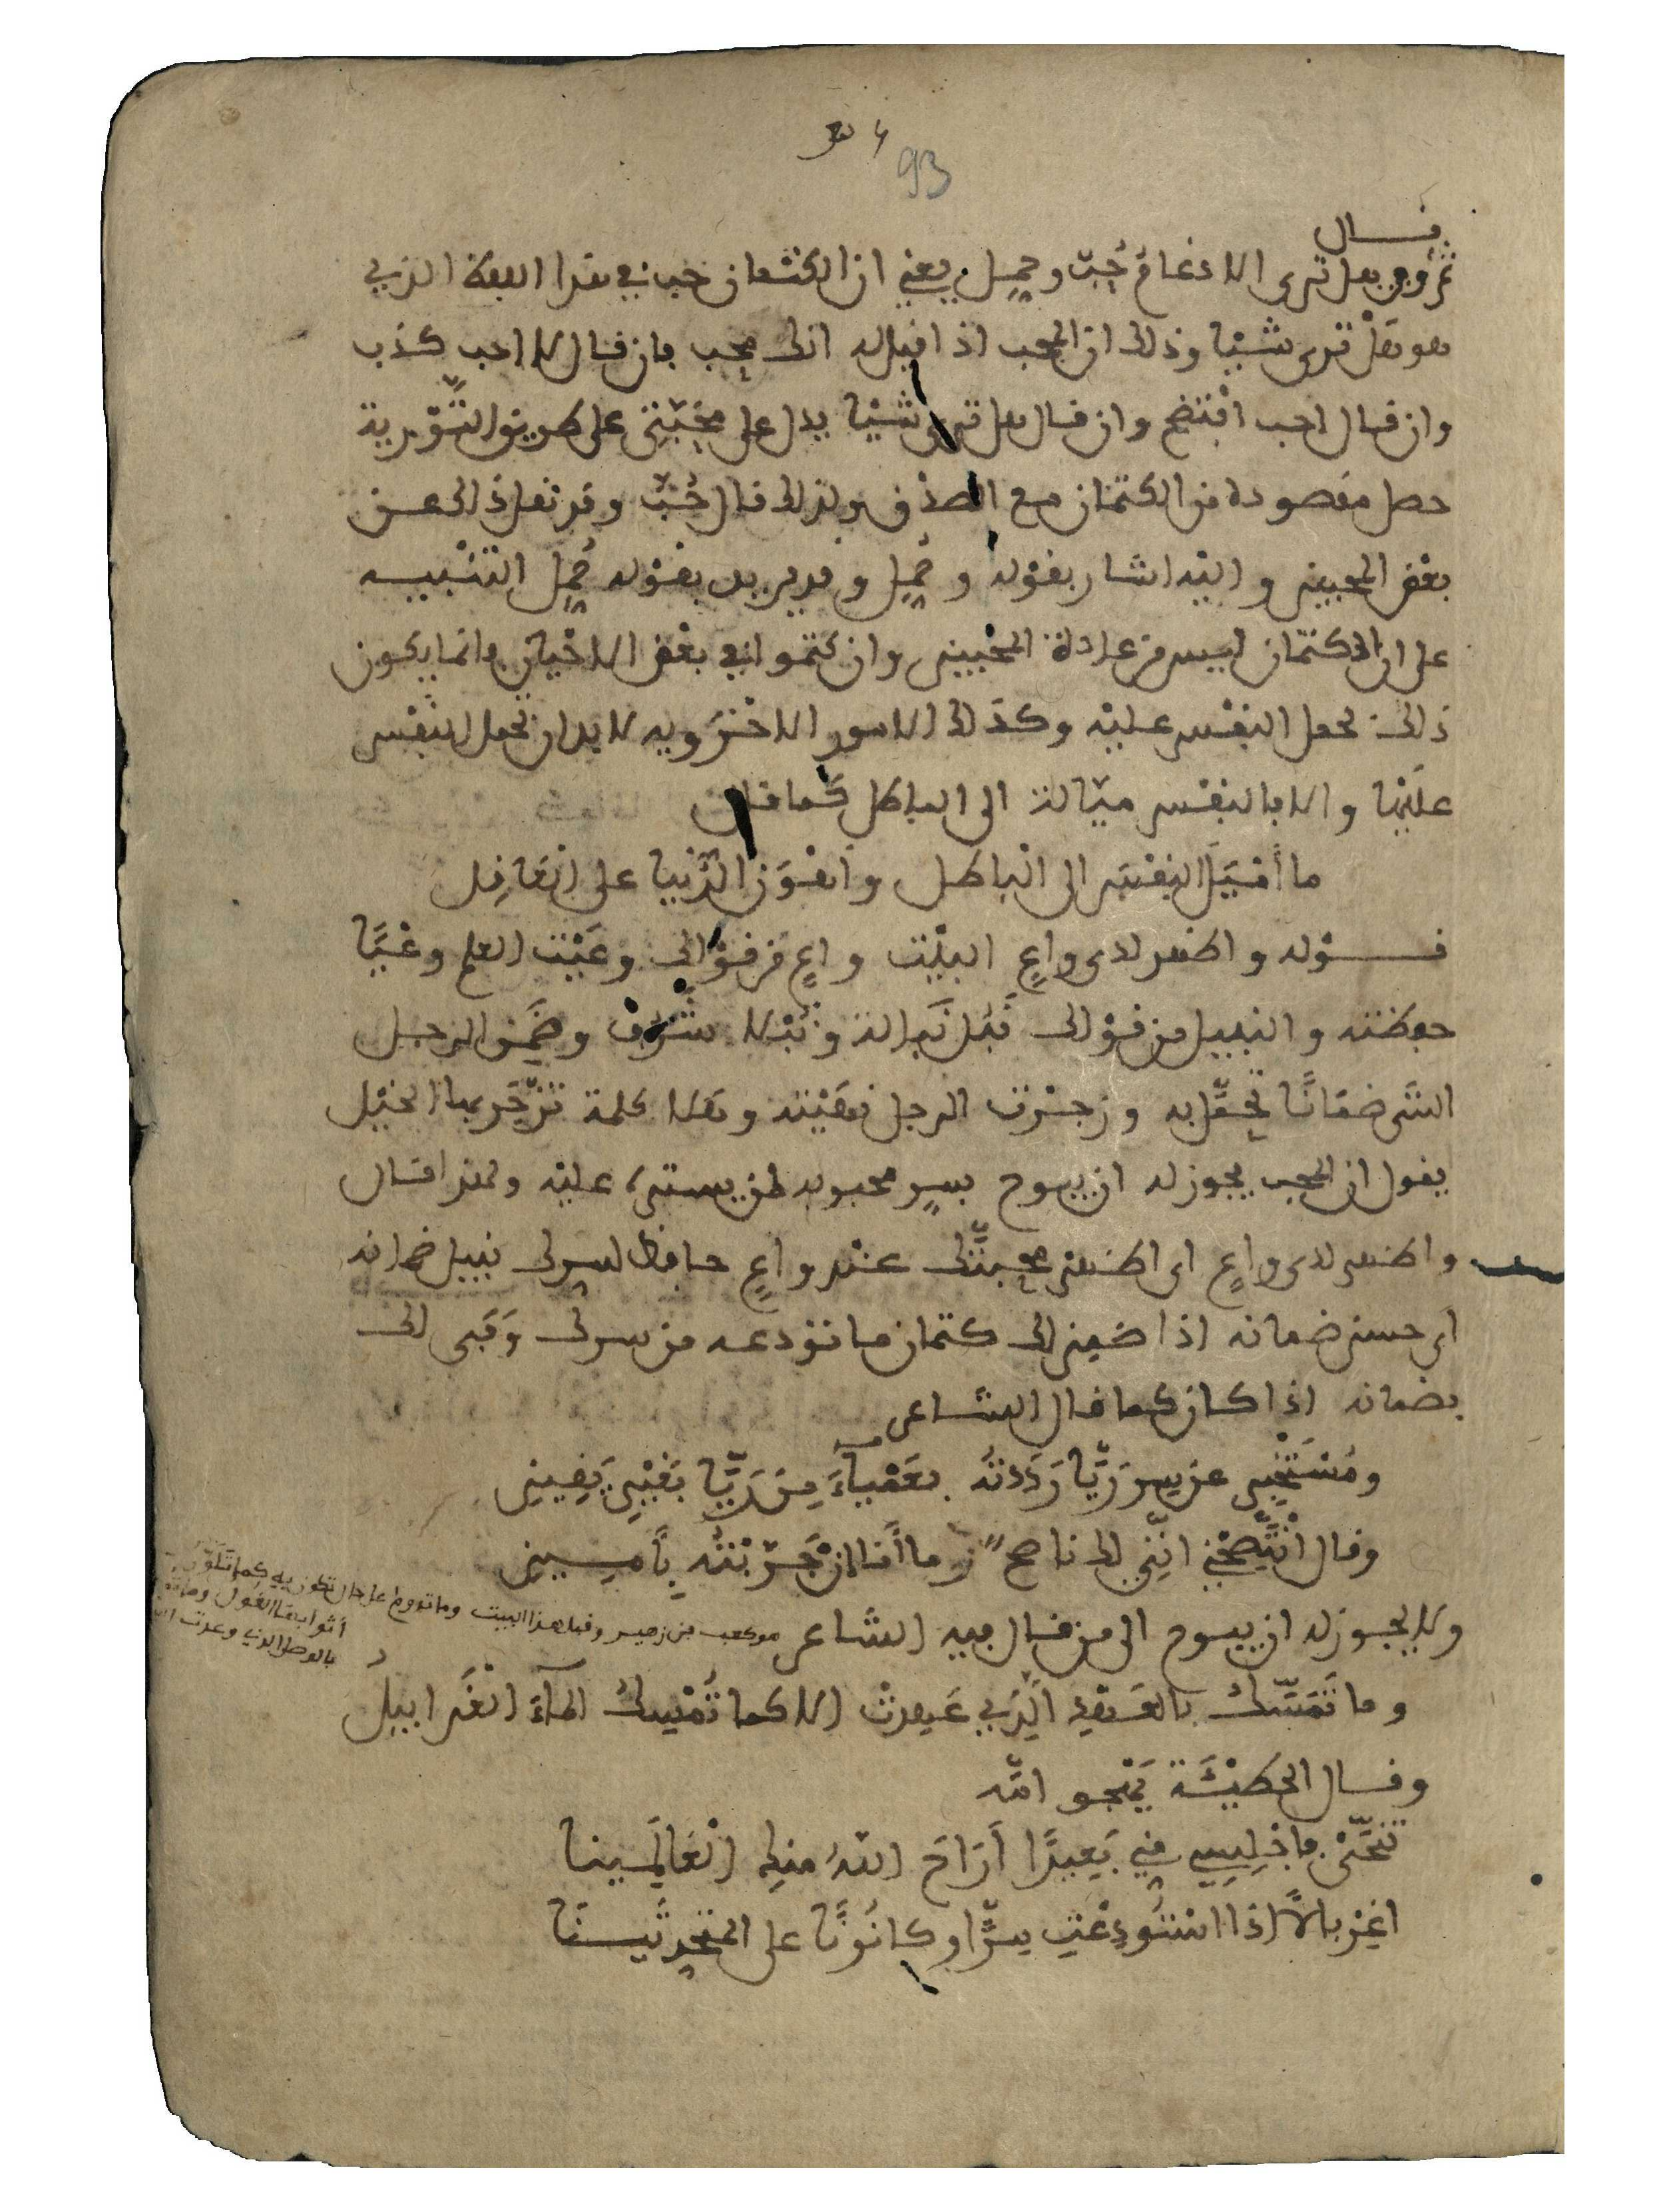 93
قال
ثم وهل ترى الادغام خبّ وجميل يعني ان الكتمان خب في هذا اللفظ الذي
هو هل ترى شيْئا وذلك ان المحب اذا قيل له انك محب فان قال لا احب كذب
وان قال احب افتضح وان قال هل ترى شيْئا يدل على محبّتي على طريق التّوْرية
حصل مقصوده من الكتمان مع الصدْق ولذلك قال خُبّ وقد نقل ذلك عن
بعْض المحبين واليْه اشار بقوْله وجُمِل وقد يريد بقوْله جُمِل التنْبيه
على ان الكتمان ليس من عادة المحْبين وان كتموا في بعْض الاحْيان وانما يكون
ذلك بحمل النفْس عليْه وكذلك الامور الاخْرَويه لا بد ان تحمل النفْس
عليْها والا فالنفْس ميّالة الى الباطل كما قال
ما أمْيَلَ النفْسَ الى الْباطل وأهْوَنَ الدُّنْيا على الْعَاقِل
قوْله واظهر لدى واعٍ البيْت واعٍ من قوْلك وعَيْت العلم وعْيًا
حفظته والنبيل من قوْلك نَبُل نَبالة ونُبْلا شَرُف وضَمِن الرجل
الشى ضمَانًا تحمّل به وزجرْت الرجل نهَيْته وهَلا كلمة تزْجَر بها الخيْل
يقول ان المحب يجوز له ان يبوح بسرٍ محبوبه لمن يستر عليْه ولهذا قال
واظهر لدى واعٍ اى اظهر محبّتك عنْد واعٍ حافظ لسرك نبيل ضمانه
اى حسن ضمانه اذا ضمن لك كتمان ما تودعه من سرك وَفَى لك
بضمانه اذا كان كما قال الشاعر
ومُسْتَخْبِر عن سر رَيَّا رَدَدْتُه بعَمْياءَ مِنْ رَيَّا بغَيْرِ يَقِينِ
وقال انْتَصِحْنِي انّنِي لك ناصح وما أنا انْ خَبّرْتُه بأَمِينِ
ولا يجوز له ان يبوح الى من قال فيه الشاعر هو كعب بن زهير وقبل هذا البيت وما تدوم على حال تكون به كما تَلَوَّن
أثوابها الغُول
بالوصل الذي
وما تَمَسّكُ بالعَهْدِ الّذِي عَهِدَتْ الا كما تُمْسِكُ الماءَ الْغَرابيلُ
وقال الحطَيْئَة يَهْجو امّه
تَنَحَّىْ فاجْلِسِي مِنِّي بَعِيدًا أَرَاحَ اللهُ منكِ الْعَالَمِينا
اغِرْبالاً اذا اسْتُودِعْتِ سِرًّا وكانُونًا على المتحدثينَا